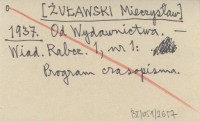 [ŻUŁAWSKI Mieczysław]
1937. Od Wydawnictwa. —
Wiad. Rabcz. 1, nr 1:
Program czasopisma.